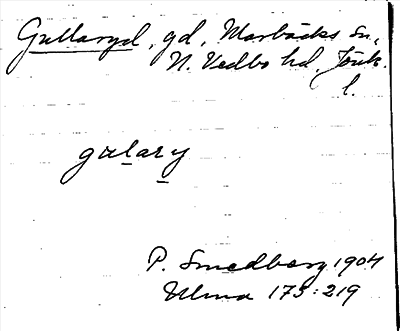 Gullaryd, gd, Marbäcks sn,
N. Vedbo hd, Jönk.
l.
gulary
P. Smedberg 1904
Ulma 173:219